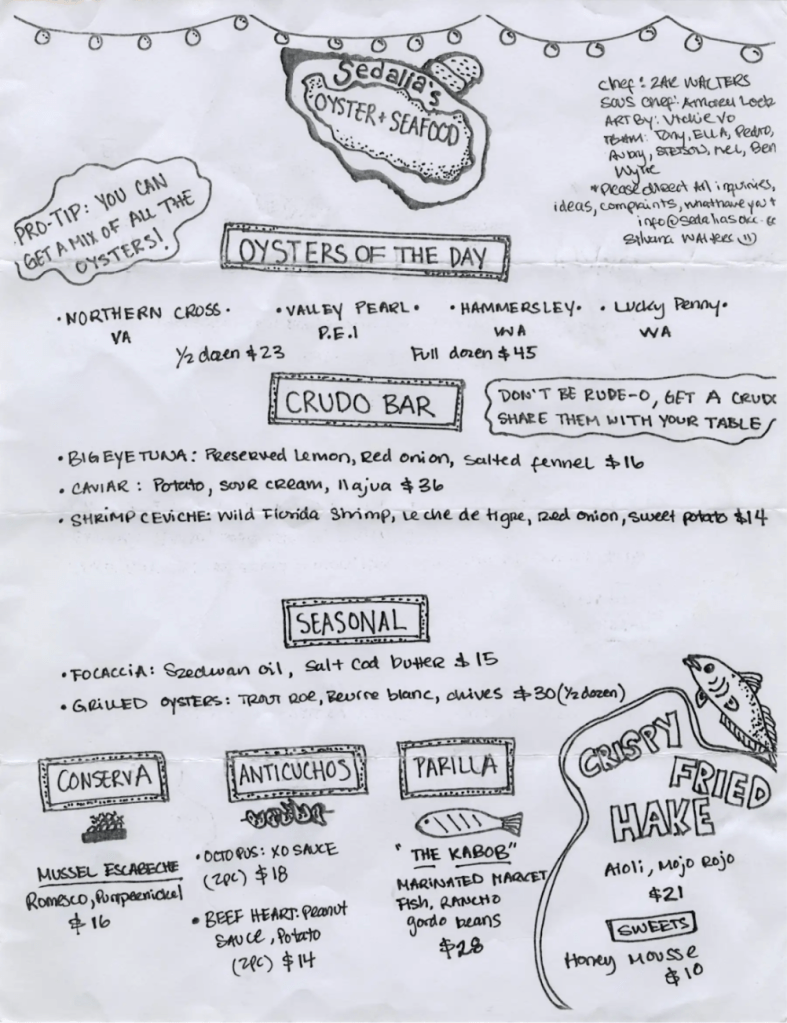 Sedalia's
OYSTER + SEAFOOD
Chef: ZAK WALTERS
Sous Chef:
ART By: Vickie Vo
TEAM: Tony, ELLA, Pedro,
Avery, STETSON, Mel, Ben
Wylie
*Please direct All inquiries,
ideas, complaints, whathaveyou t
info@sedaliasokc.cc
Silvana Walters :)
PRO-TIP: YOU CAN
GET A MIX OF ALL THE
OYSTERS!
OYSTERS OF THE DAY
• NORTHERN CROSS •
VA
• VALLEY PEARL •
P.E.I
• HAMMERSLEY •
WA
• Lucky Penny •
WA
1/2 dozen $23
Full dozen $45
CRUDO BAR
DON'T BE RUDE-O, GET A CRUDO
SHARE THEM WITH YOUR TABLE
• BIG EYE TUNA: Preserved Lemon, Red onion, Salted fennel $16
• CAVIAR: Potato, sour cream, llajua $36
• SHRIMP CEVICHE: Wild Florida Shrimp, Leche de tigre, Red onion, sweet potato $14
SEASONAL
• FOCACCIA: Szechwan oil, Salt Cod butter $15
• GRILLED OYSTERS: TROUT ROE, Beurre blanc, chives $30 (1/2 dozen)
CONSERVA
MUSSEL ESCABECHE
Romesco, Pumpernickel
$16
ANTICUCHOS
• OCTOPUS: XO SAUCE
(2PC) $18
• BEEF HEART: Peanut
SAUCE, Potato
(2PC) $14
PARILLA
"THE KABOB"
MARINATED MARKET
Fish, RANCHO
gordo beans
$28
CRISPY
FRIED
HAKE
Aioli, Mojo Rojo
$21
SWEETS
Honey Mousse
$10